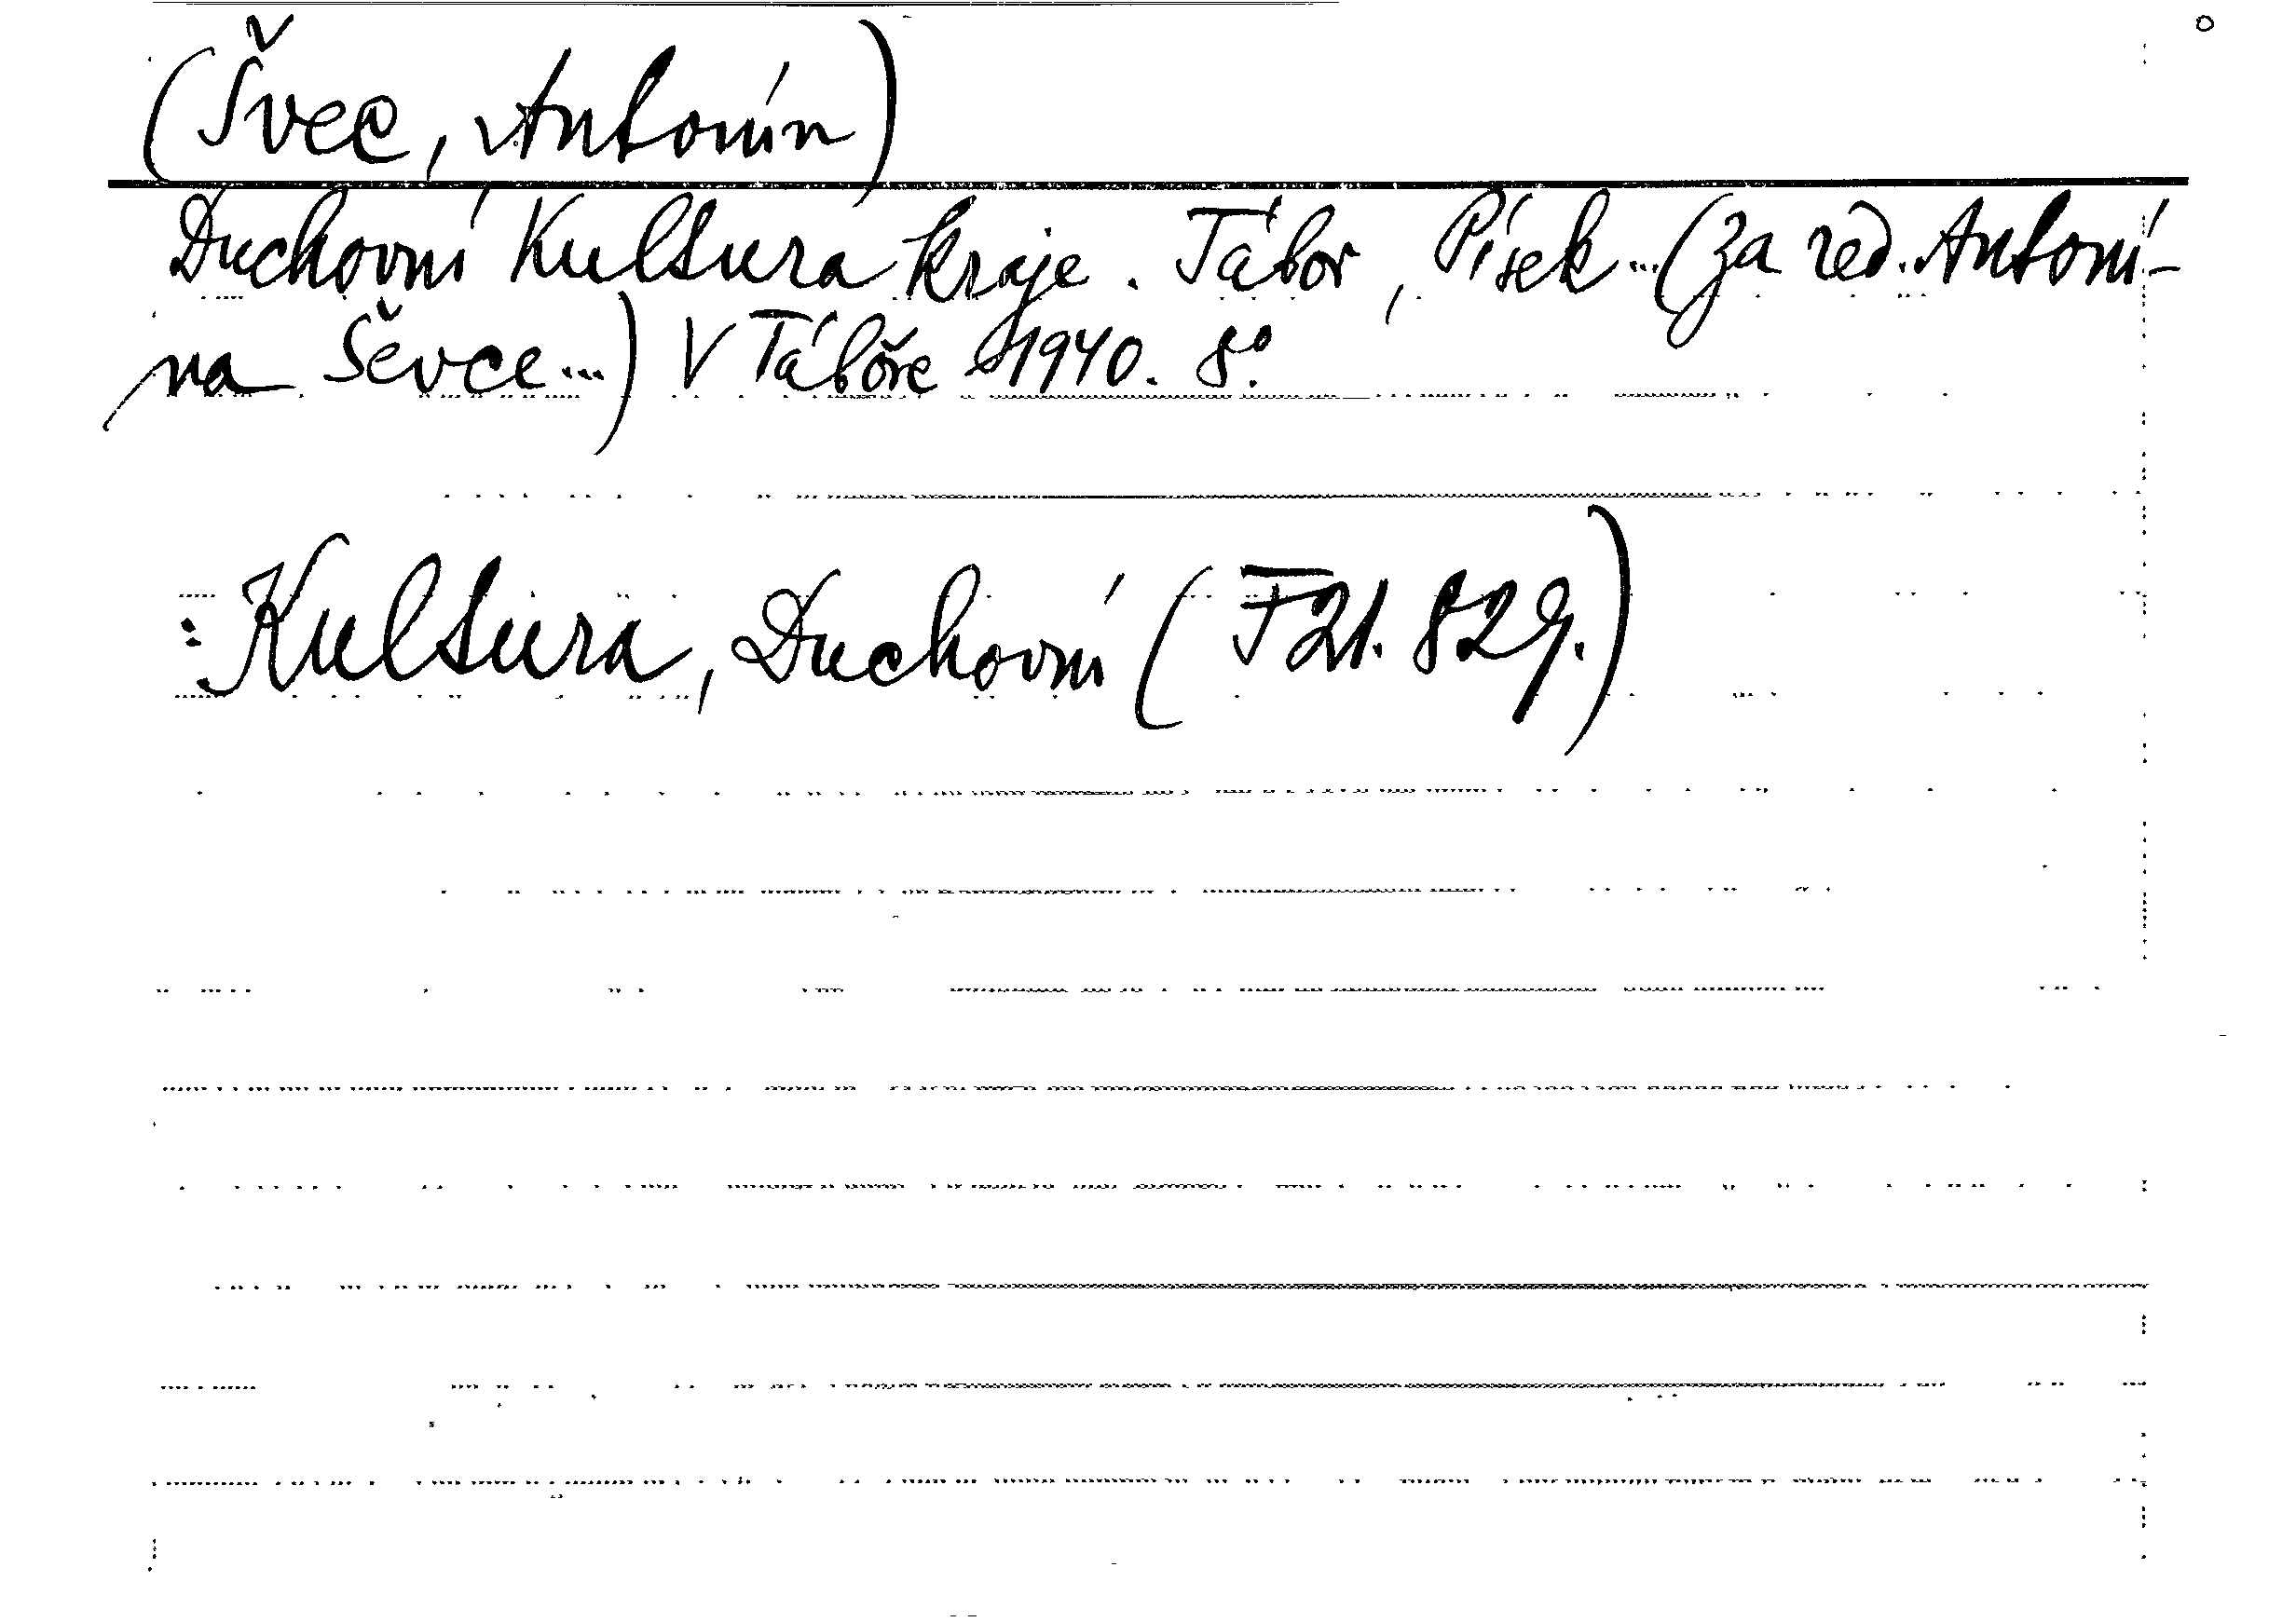 (Švec, Antonín)
Duchovní Kultura kraje. Tábor, Písek... (Za red. Antoní-
na Ševce...) V Táboře 1940. 8°.
: Kultura, Duchovní (F 21. 829.)